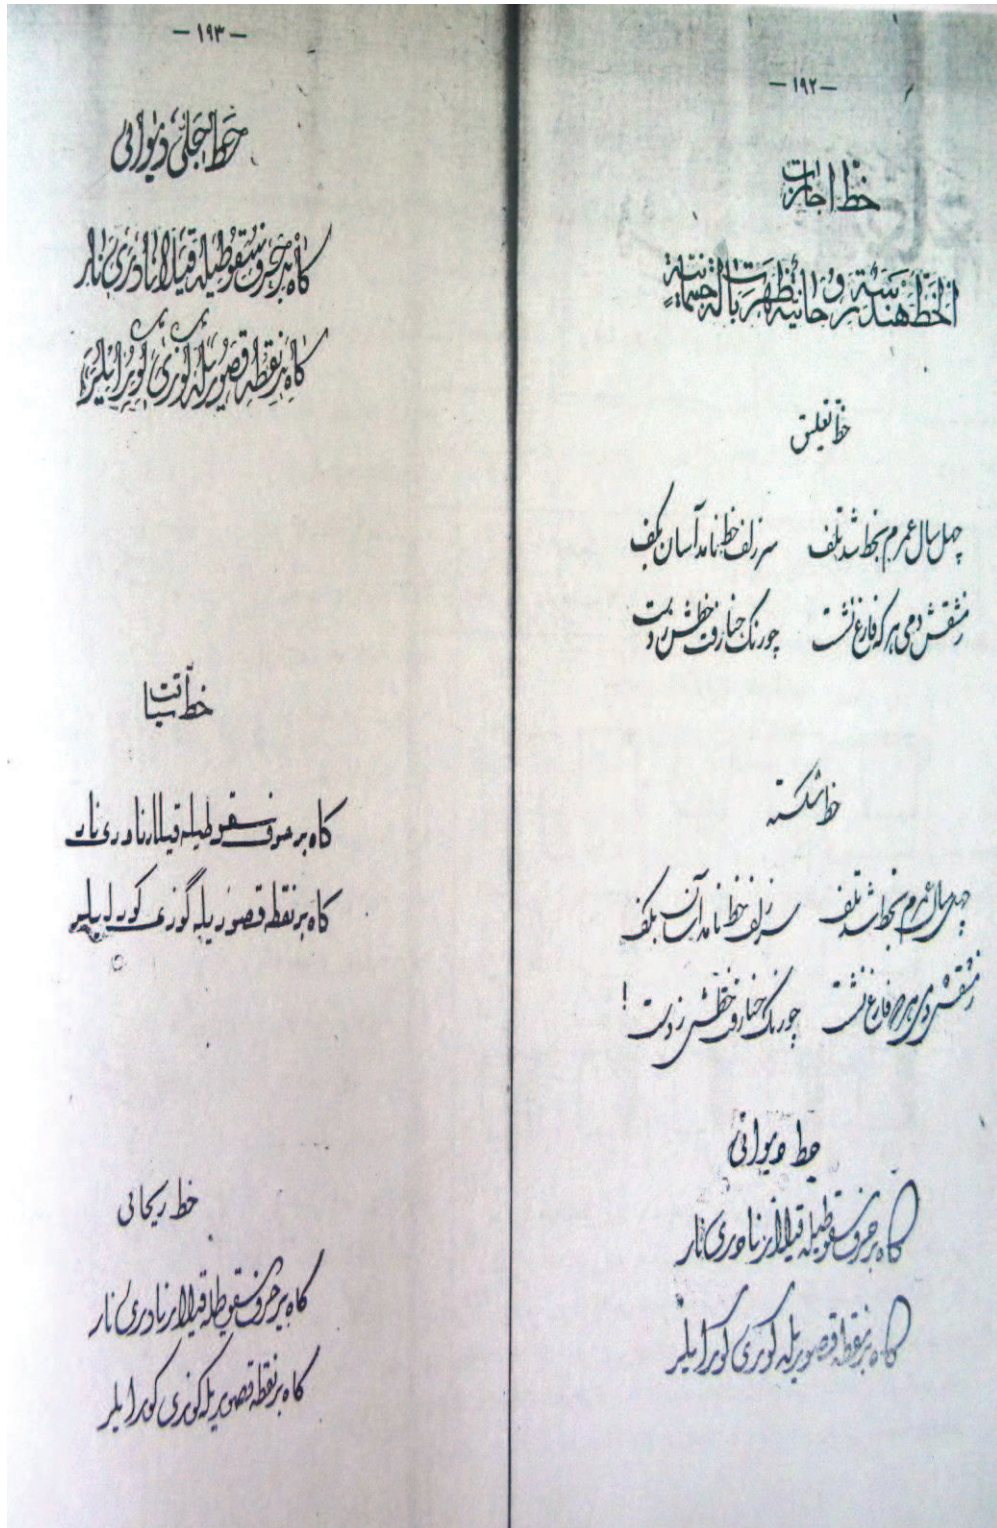 — ١٩٢ —
خط اجازات
الخط هندسة روحانية ظهرت بآلة جسمانية
خط تعليق
چهل سال عمرم بخط شد تلف سر زلف خط نامد آسان بكف
ز مشقش دمى هر كه فارغ نشست چو رنك حنا رفت خطش ز دست
خط شكسته
چهل سال عمرم بخط شد تلف سر زلف خط نامد آسان بكف
ز مشقش دمى هر كه فارغ نشست چو رنك حنا رفت خطش ز دست !
خط ديوانى
كاه بر حرف سقوطيله قيلار نادرى نار
كاه بر نقطه قصوريله كوزى كور ايلر
— ١٩٣ —
خط جلى ديوانى
كاه بر حرف سقوطيله قيلار نادرى نار
كاه بر نقطه قصوريله كوزى كور ايلر
خط سياقت
كاه بر حرف سقوطيله قيلار نادرى نار
كاه بر نقطه قصوريله گوزى كور ايلر
خط ريحانى
كاه بر حرف سقوطيله قيلار نادرى نار
كاه بر نقطه قصوريله كوزى كور ايلر